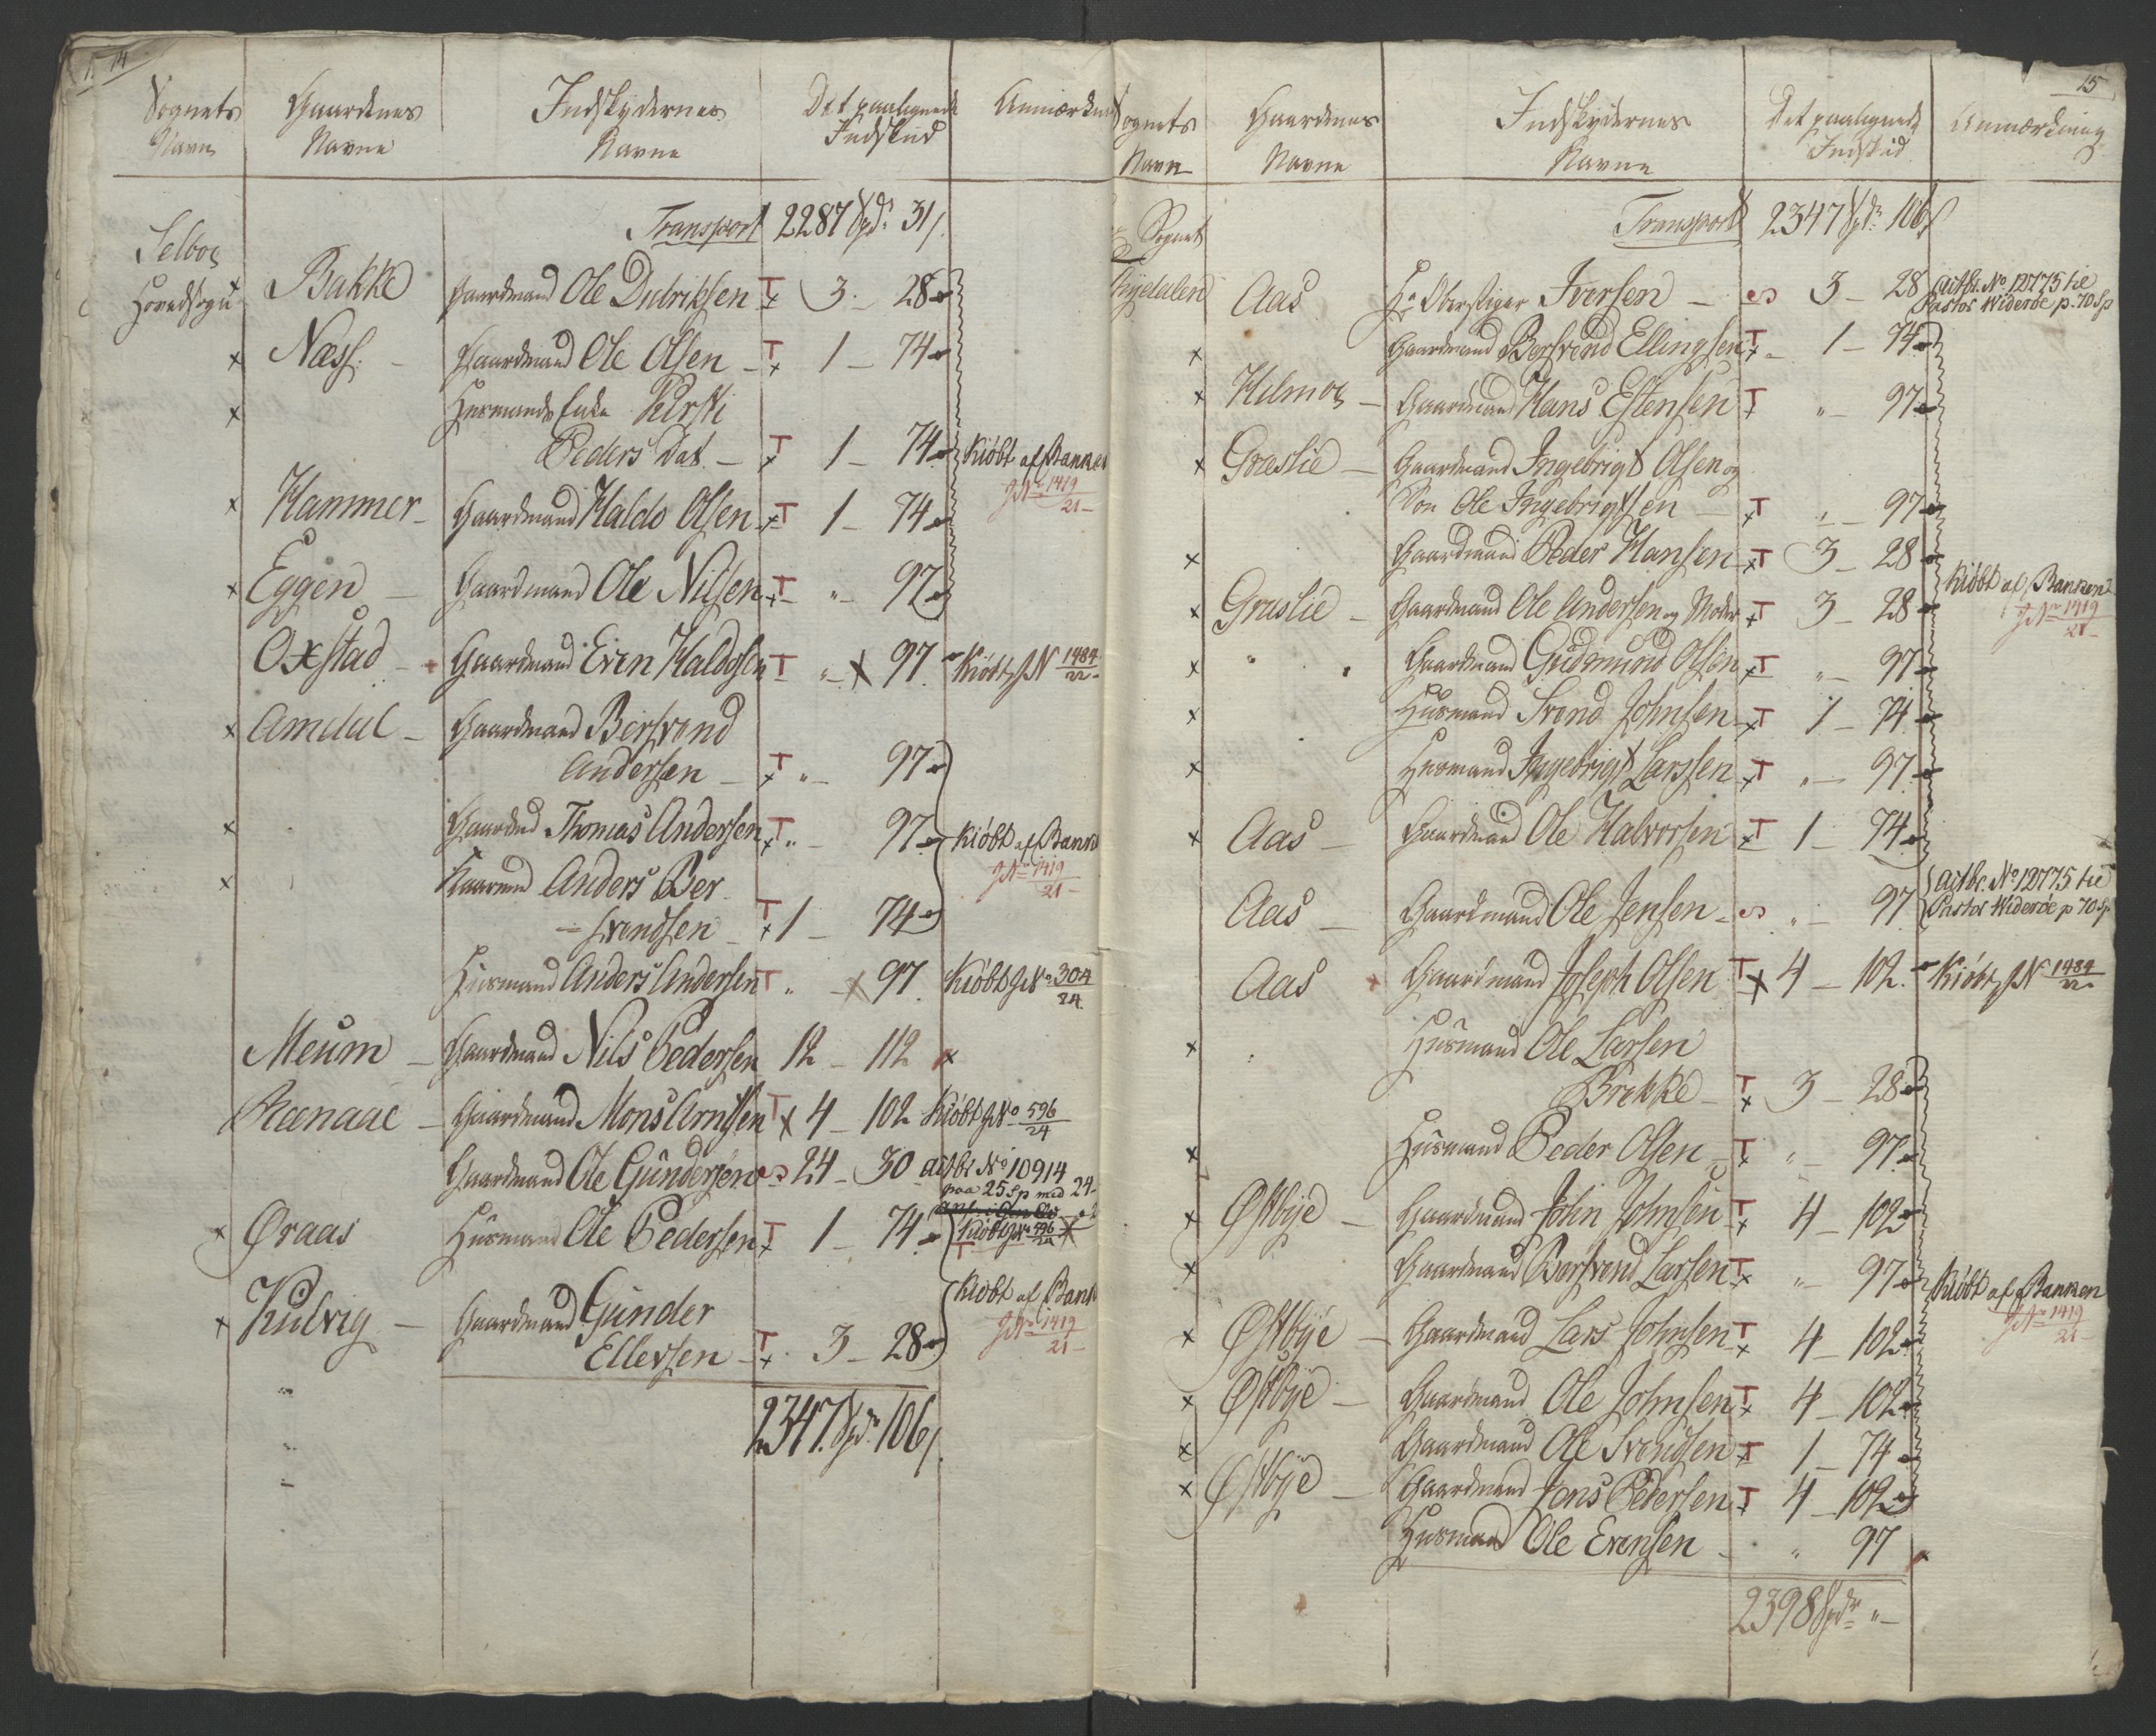 14
Sognets Navn
Gaardenes Navne
Indskydernes Navne
Det paalignede Indskud
Anmærkn
Transport 2287 Spd. 31 s.
Selboe
Hovedsogn
x Bakke Gaardmand Ole Didriksen T x 3 - 28
x Næss. - Gaardmand Ole Olsen - T x 1 - 74
x Huusmands Enke Kirsti
Peders Dat. - T x 1 - 74 Kiöbt af Banken
J No 1419/21 -
x Hammer - Gaardmand Haldo Olsen T x 1 - 74
x Eggen - Gaardmand Ole Nilsen T x " - 97
Oxstad - + Gaardmand Even Haldosen T " - x 97 Kiöbt J N 1484/22 -
x Amdal - Gaardmand Bersvend
Andersen - T x " - 97
x Gaardmd Thomas Andersen T x " - 97 Kiöbt af Bank
J No 1419/21 -
x Kaarmd Anders Ber-
- svendsen - T x 1 - 74
Huusmand Anders Andersen T " - x 97 Kiöbt J No 304/24
Meüm - Gaardmand Nils Pedersen 12 - 112 x
Rænaae - Gaardmand Mons Arntsen T x 4 - 102 Kiöbt J No 596/24
Gaardmand Ole Gündersen 24 - 30 actbr. No 10914
paa 25 Sp med 24 -
x Øraas Huusmand Ole Pedersen T x 1 - 74 Kiöbt J No 596/24 x
T
x Kulvig - Gaardmand Günder Kiöbt af Bank
Ellevsen - T x 3 - 28 J No 1419/21 -
2347 Spd. 106 s.
15
Sognets Navn
Gaardenes Navne
Indskydernes Navne
Det paalignede Indskud
Anmærkning
Transport 2347 Spd. 106 s
Sognet
Tydalen
Aas Hr Oberstiger Iversen - 3 - 28 actbr. No 12775 til
Pastor Widerøe p. 70 Sp
x Gaardmand Bersvend Ellingsen T x - 1 - 74
x Hilmoe - Gaardmand Hans Estensen T x " - 97
x Græslie - Gaardmand Ingebrigt Olsen og
Søn Ole Ingebrigtsen - T x " - 97
x Gaardmand Peder Hansen T x 3 - 28
Kiöbt af Banken
x Græslie - Gaardmand Ole Andersen og Moder T x 3 - 28 J No 1419/21 -
x " Gaardmand Gudmund Olsen T x " - 97
x Huusmand Svend Johnsen T x 1 - 74
x Huusmand Ingebrigt Larssen T x " - 97
x Aas - Gaardmand Ole Halvorsen T x 1 - 74
Aas - Gaardmand Ole Jensen - " - 97 actbr. No 12775 til
Pastor Widerøe p 70 Sp
Aas + Gaardmand Joseph Olsen T x 4 - 102. Kiöbt J N 1484/22 -
x Huusmand Ole Larsen
Brekke - T x 3 - 28
x Huusmand Peder Olsen - T x " - 97
x Østbye - Gaardmand John Johnsen T x 4 - 102
x Gaardmand Bersvend Larsen T x " - 97 Kiöbt af Banken
J No 1419/21 -
x Østbye - Gaardmand Lars Johnsen T x 4 - 102
x Østbye - Gaardmand Ole Johnsen T x 4 - 102
x Gaardmand Ole Svendsen T x 1 - 74
x Østbye - Gaardmand Jens Pedersen T x 4 - 102
Huusmand Ole Evensen - " 97 x
2398 Spdr " -